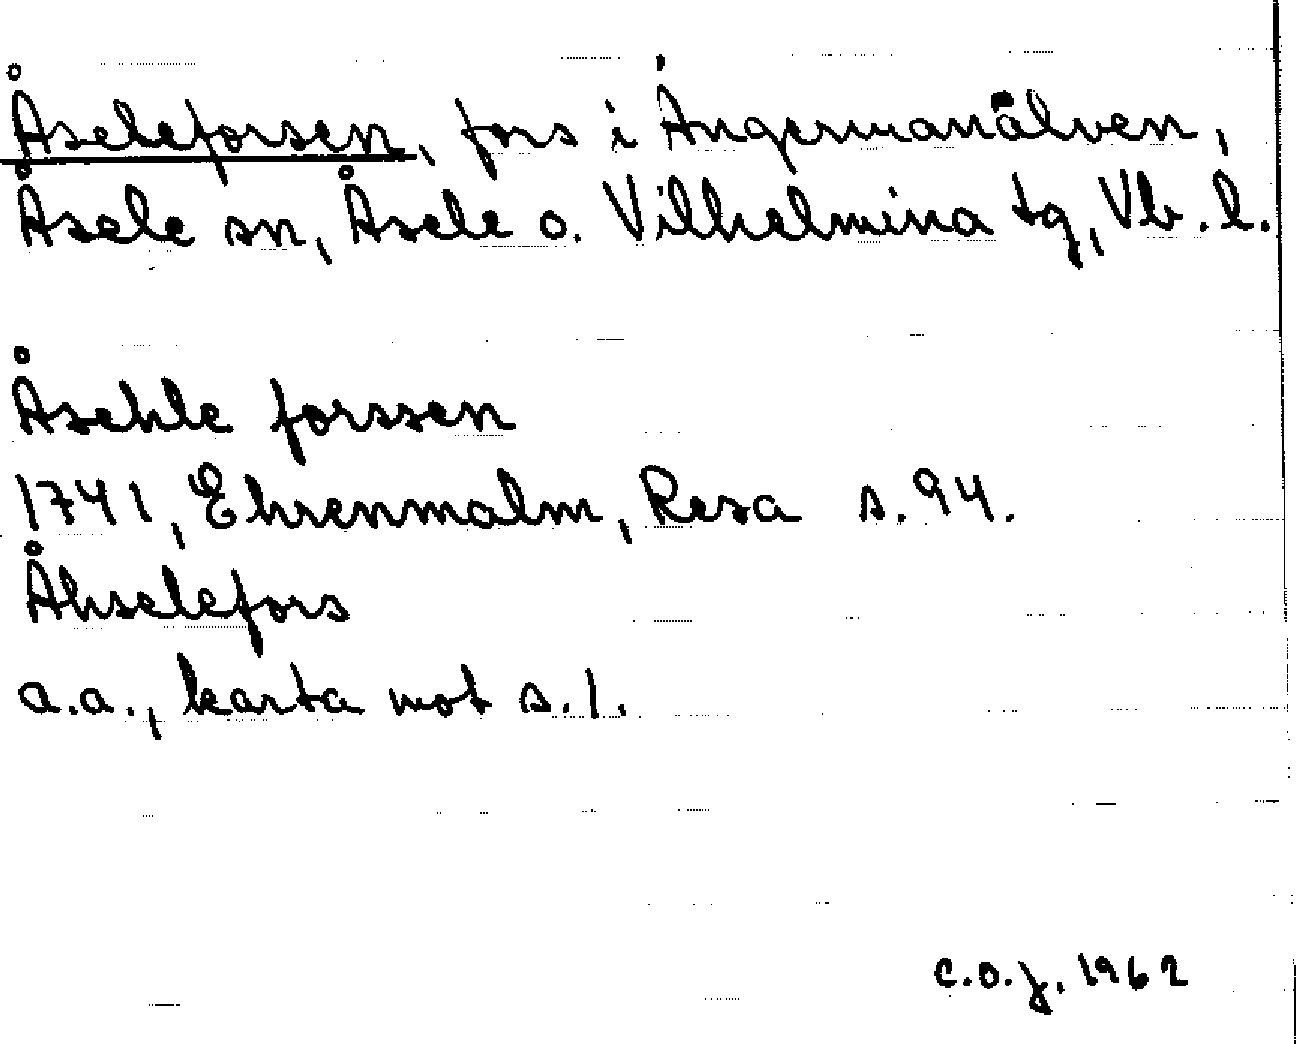 Åseleforsen, fors i Ångermanälven,
Åsele sn, Åsele o. Vilhelmina tg, Vb. l.
Åsehle forssen
1741, Ehrenmalm, Resa s. 94.
Åhselefors
a.a., karta mot s. 1.
C.O.J. 1962